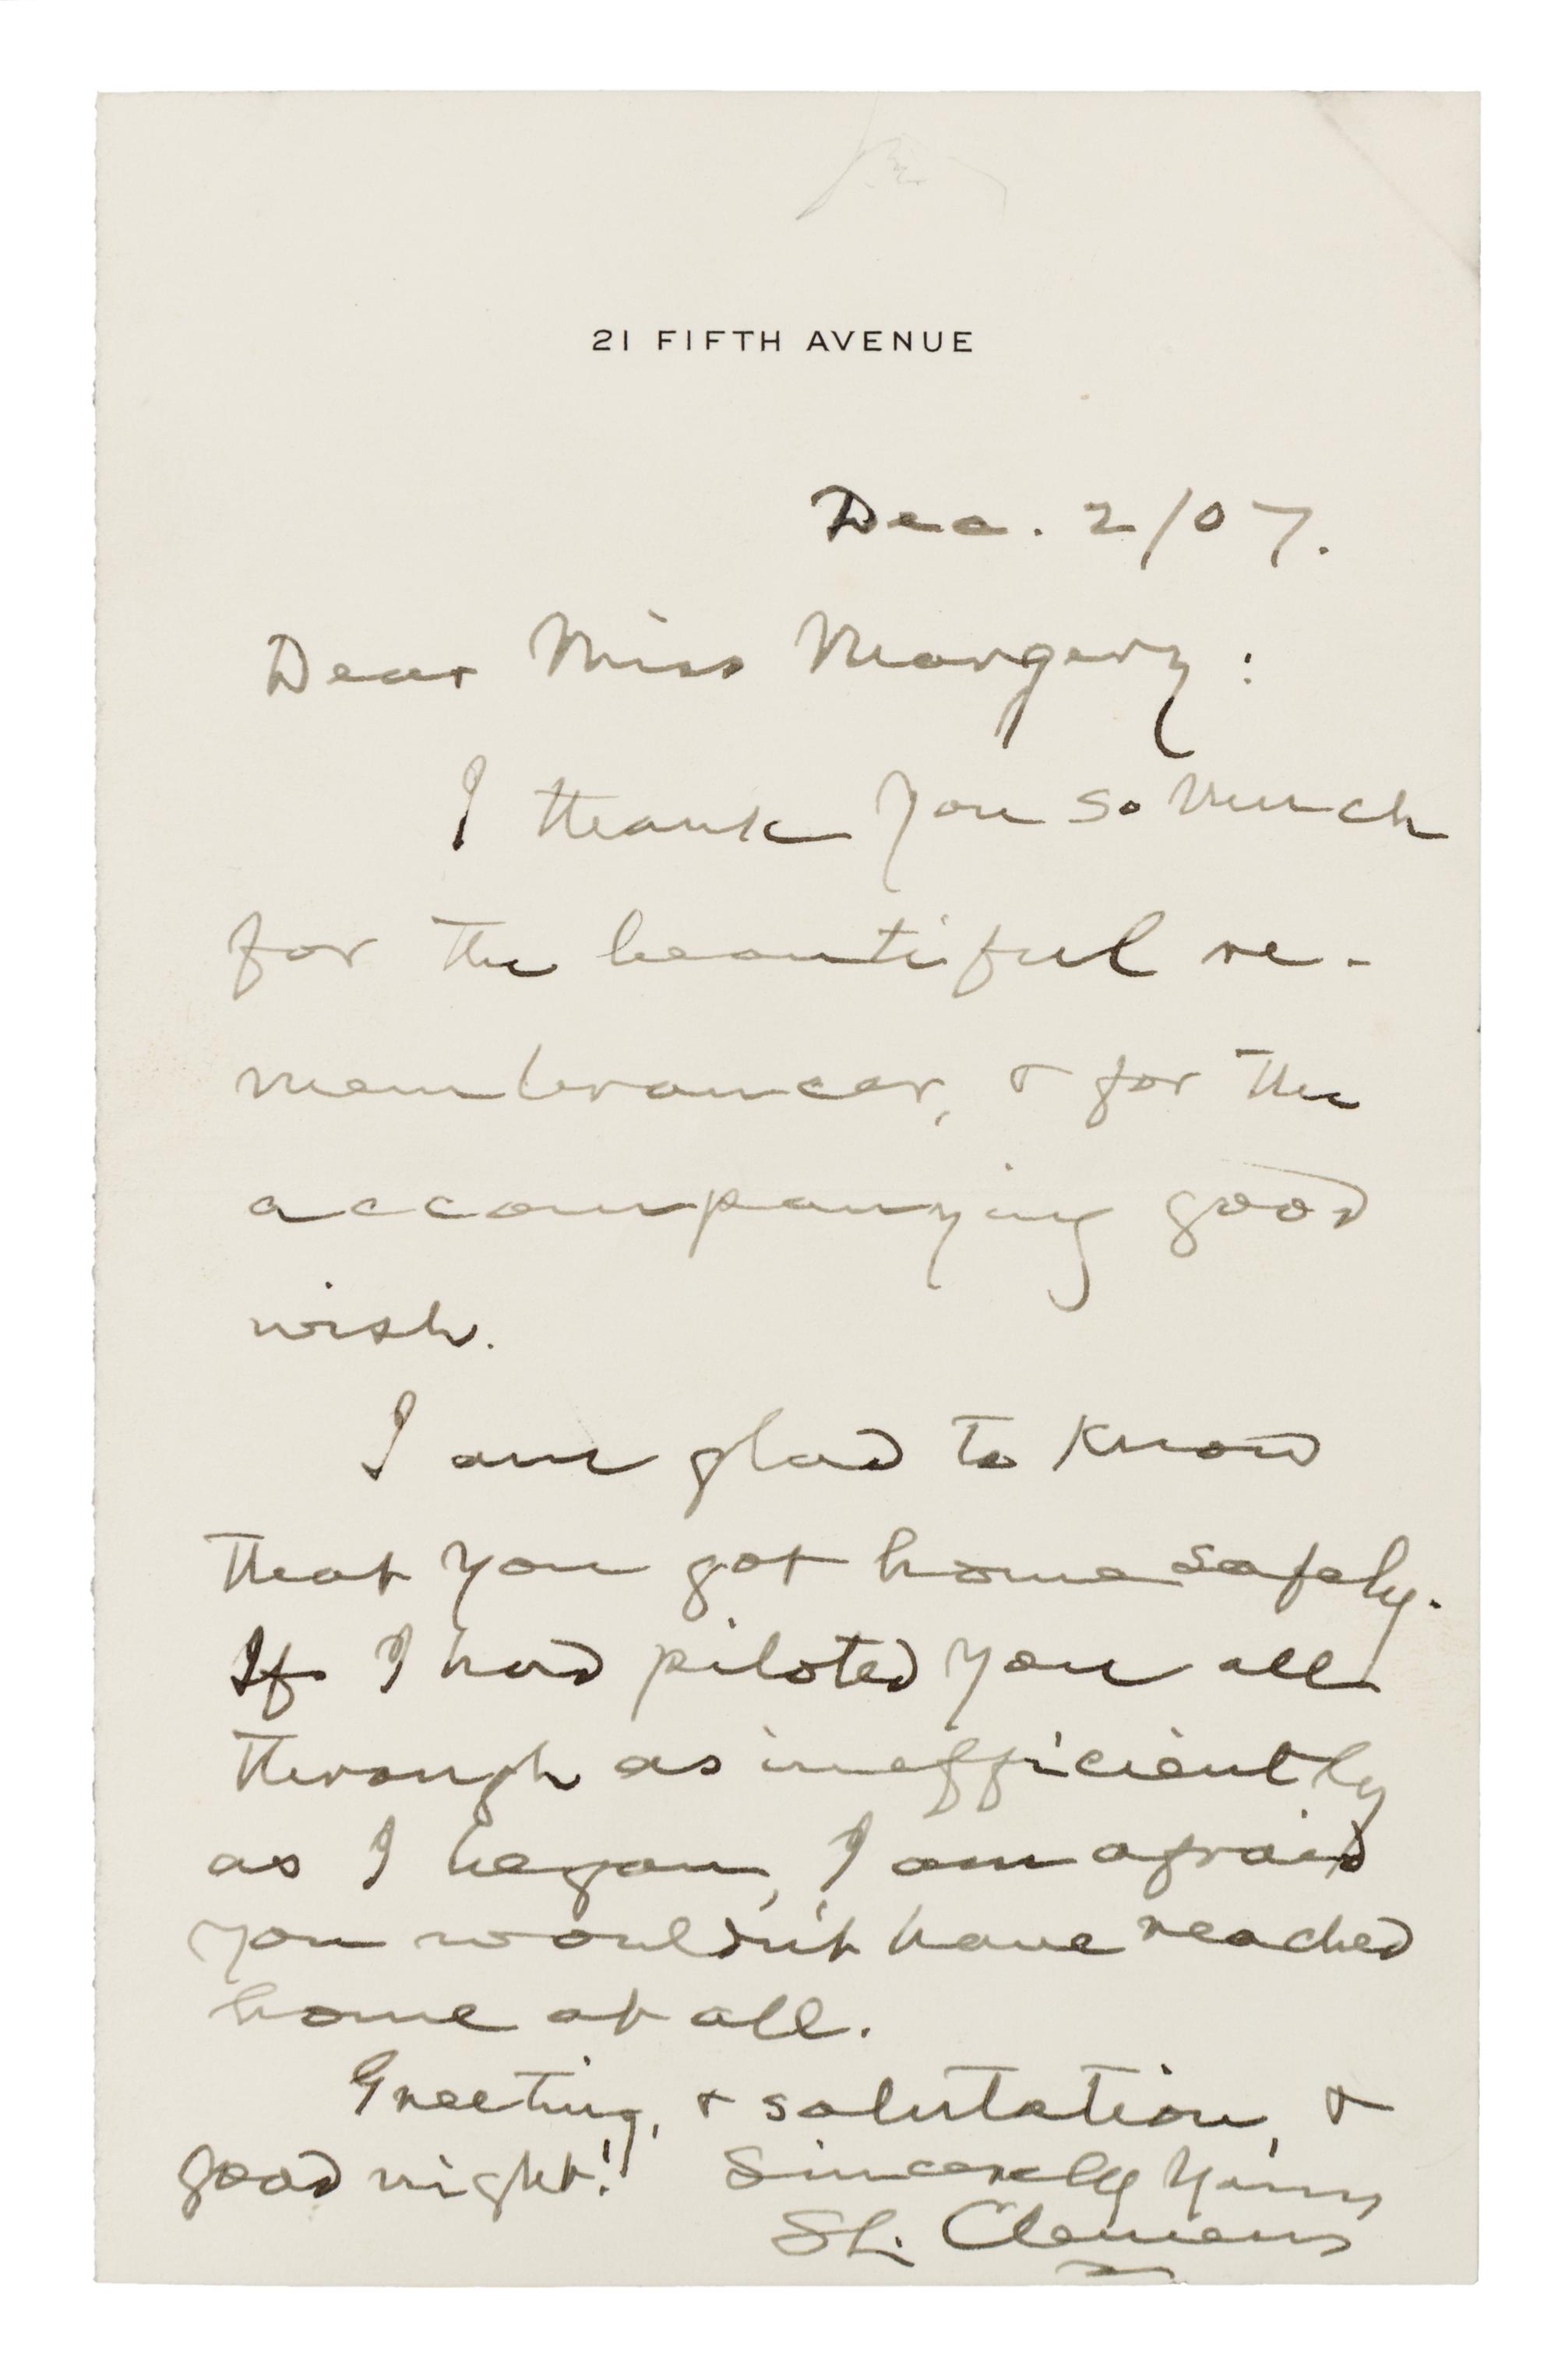 21 FIFTH AVENUE
Dec. 2/07.
Dear Miss Margery:
I thank you so much
for the beautiful re-
membrancer, & for the
accompanying good
wish.
I am glad to know
that you got home safely.
If I had piloted you all
through as inefficiently
as I began, I am afraid
you wouldn't have reached
home at all.
Greeting, & salutation, &
good night!  Sincerely Yours
SL. Clemens